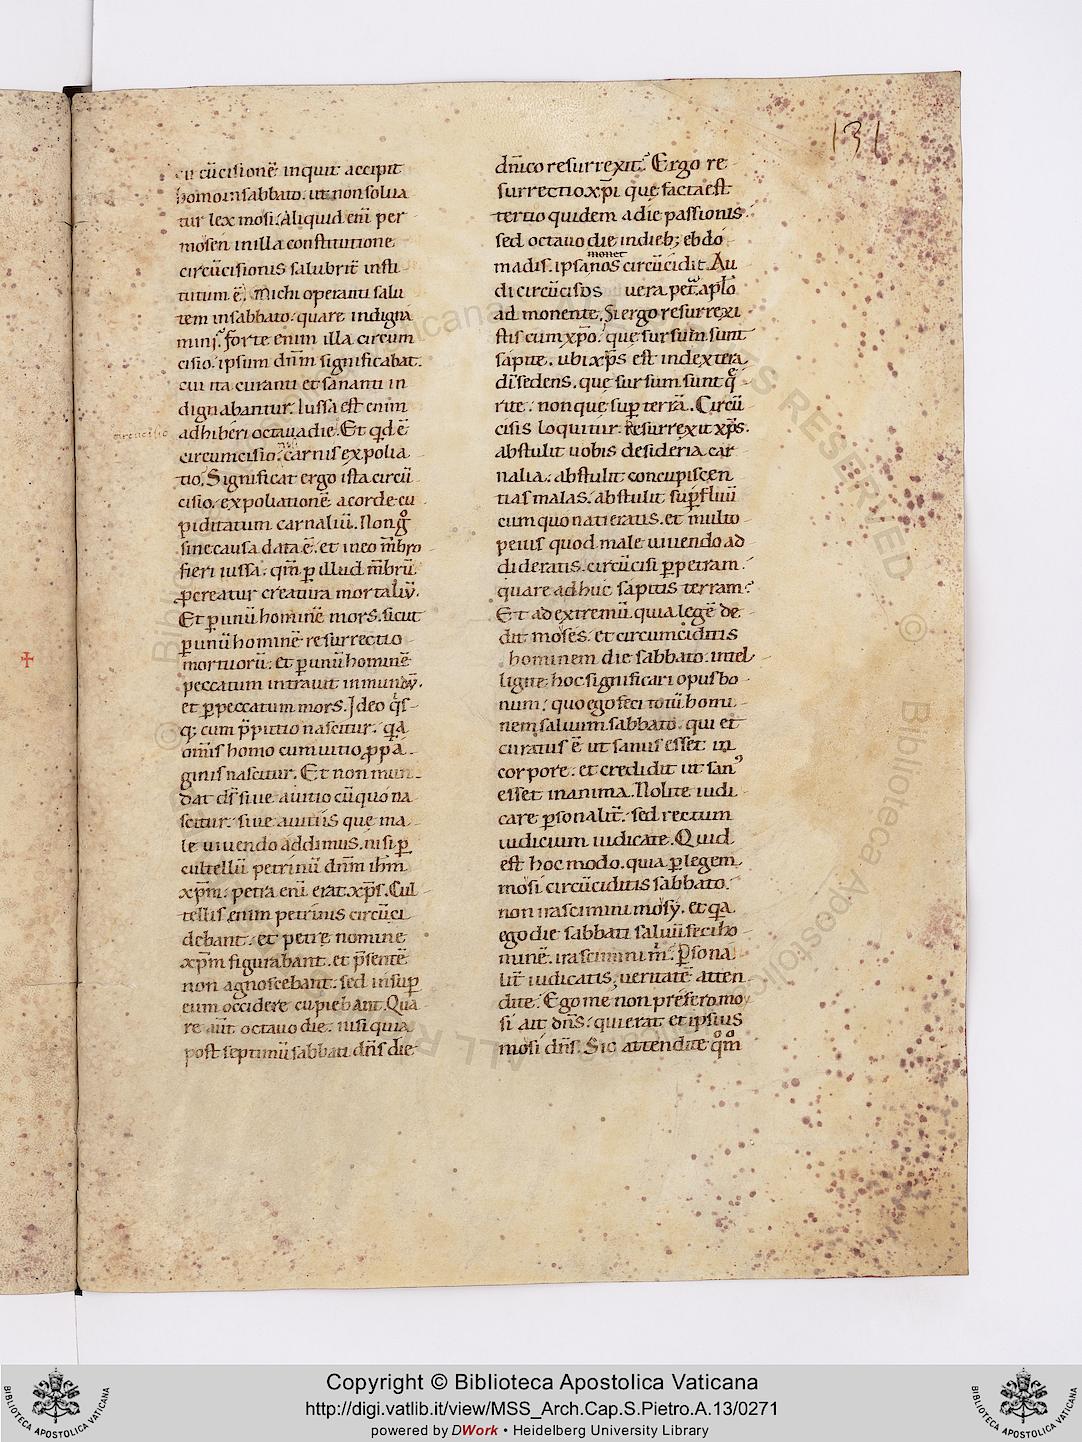 131
circūcisionē inquit accipit
homo insabbato. ut non solua
tur lex mosi. Aliquid eni per
mosen in illa constitutione
circūcisionis salubrit insti
tutum ē. Michi operanti salu
tem insabbato. quare indigna
mini. forte enim illa circum
cisio. ipsum dnm significabat.
cui ita curanti et sananti in
dignabantur. Iussa est enim
circūcisio
adhiberi octaua die. Et qd ē
circumcisio. carnis expolia
tio. Significat ergo ista circū
cisio. expoliationē acorde cu
piditatum carnaliū. Non g
sine causa data ē. et in eo mbro
fieri iussa. qm p illud mbrū
pcreatur creatura mortaliū.
Et p unū hominē mors. sicut
p unū hominē resurrectio
mortuorū. et p unū hominē
peccatum intrauit in mundū.
et p peccatum mors. Ideo qs
q; cum pputio nascitur. qa
omis homo cum uitio ppa
ginis nascitur. Et non mun
dat ds siue a uitio cū quo na
scitur. siue a uitiis que ma
le uiuendo addimus. nisi p
cultellū petrinū dnm ihm
xpm. petra eni erat xps. Cul
tellis enim petrinis circūci
debant. et petre nomine
xpm figurabant. et psentē
non agnoscebant. sed insup
eum occidere cupiebant. Qua
re aut octauo die. nisi quia
post septimū sabbati dns die
dnico resurrexit. Ergo re
surrectio xpi que facta est
tertio quidem a die passionis.
sed octauo die in dieb; ebdo
madis. ipsa nos circūcidit. Au
monet
di circūcisos uera petra aplo
ad monente. Si ergo resurrexi
stis cum xpo. que sursum sunt
sapite. ubi xps est in dextera
di sedens. que sursum sunt q
rite. non que sup terrā. Circū
cisis loquitur. Resurrexit xps.
abstulit uobis desideria car
nalia. abstulit concupiscen
tias malas. abstulit supfluū
cum quo nati eratis. et multo
peius quod male uiuendo ad
dideratis. circūcisi p petram.
quare adhuc sapitis terram.
Et ad extremū quia legē de
dit moses. et circumciditis
hominem die sabbato. intel
ligite hoc significari opus bo
num. quo ego feci totū homi
nem saluum sabbato. qui et
curatus ē ut sanus esset in
corpore. et credidit ut san'
esset in anima. Nolite iudi
care psonalit. sed rectum
iudicium iudicate. Quid
est hoc modo. quia p legem
mosi circūciditis sabbato.
non irascimini mosy. et qa
ego die sabbati saluū feci ho
minē. irascimini m. Psona
lit iudicatis; ueritatē atten
dite. Ego me non prefero mo
si ait dns. qui erat et ipsius
mosi dns. Sic attendite qm
Copyright © Biblioteca Apostolica Vaticana
http://digi.vatlib.it/view/MSS_Arch.Cap.S.Pietro.A.13/0271
powered by DWork • Heidelberg University Library